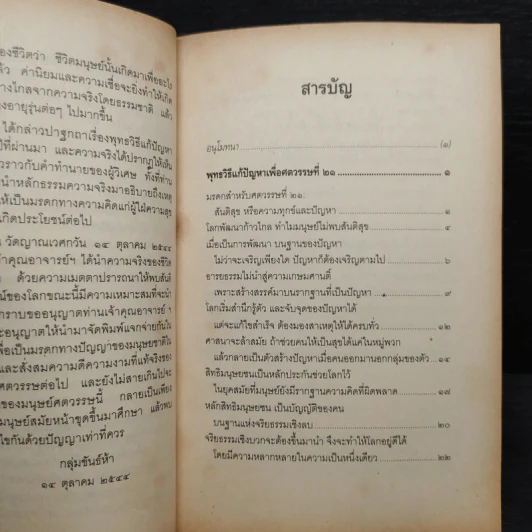 องชีวิตว่า ชีวิตมนุษย์นั้นเกิดมาเพื่ออะไร
ล้ว ค่านิยมและความเชื่อจะยิ่งทำให้เกิด
างไกลจากความจริงโดยธรรมชาติ แล้ว
งอายุรุ่นต่อๆ ไปมากขึ้น
ได้กล่าวปาฐกถาเรื่องพุทธวิธีแก้ปัญหา
ปีที่ผ่านมา และความจริงได้ปรากฏให้เห็น
วราวกับคำทำนายของผู้วิเศษ ทั้งที่ท่าน
นำหลักธรรมความจริงมาอธิบายถึงเหตุ
ให้เป็นมรดกทางความคิดแก่ผู้ใฝ่ความสุข
เกิดประโยชน์ต่อไป
วัดญาณเวศกวัน ๑๔ ตุลาคม ๒๕๔๔
จ้าคุณอาจารย์ฯ ได้นำความจริงของชีวิต
ด้วยความเมตตาปรารถนาให้พบสันติ
น์ของโลกขณะนี้มีความเหมาะสมที่จะนำ
กราบขออนุญาตท่านเจ้าคุณอาจารย์ ฯ
อนุญาตให้นำมาจัดพิมพ์แจกจ่ายกันใน
พื่อเป็นมรดกทางปัญญาของมนุษยชาติใน
และสั่งสมความดีความงามที่แท้จริงของ
ศตวรรษต่อไป และยังไม่สายเกินไปจะ
ของมนุษย์ศตวรรษนี้ กลายเป็นเพียง
มนุษย์สมัยหน้าขุดขึ้นมาศึกษา แล้วพบ
ไขกันด้วยปัญญาเท่าที่ควร
กลุ่มขันธ์ห้า
๑๔ ตุลาคม ๒๕๔๔
สารบัญ
อนุโมทนา (๑)
พุทธวิธีแก้ปัญหาเพื่อศตวรรษที่ ๒๑ ๑
มรดกสำหรับศตวรรษที่ ๒๑:
สันติสุข หรือความทุกข์และปัญหา ๑
โลกพัฒนาก้าวไกล ทำไมมนุษย์ไม่พบสันติสุข ๔
เมื่อเป็นการพัฒนา บนฐานของปัญหา
ไม่ว่าจะเจริญเพียงใด ปัญหาก็ต้องเจริญตามไป ๖
อารยธรรมไม่นำสู่ความเกษมศานติ์
เพราะสร้างสรรค์มาบนรากฐานที่เป็นปัญหา ๙
โลกเริ่มสำนึกรู้ตัว และจับจุดของปัญหาได้
แต่จะแก้ไขสำเร็จ ต้องมองสาเหตุให้ได้ครบทั่ว ๑๒
ศาสนาจะล้าสมัย ถ้าช่วยคนให้เป็นสุขได้แค่ในหมู่พวก
แล้วกลายเป็นตัวสร้างปัญหาเมื่อคนออกมานอกกลุ่มของตัว ๑๔
สิทธิมนุษยชนเป็นหลักประกันช่วยโลกไว้
ในยุคสมัยที่มนุษย์ยังมีรากฐานความคิดที่ผิดพลาด ๑๗
หลักสิทธิมนุษยชน เป็นบัญญัติของคน
บนฐานแห่งจริยธรรมเชิงลบ ๒๐
จริยธรรมเชิงบวกจะต้องขึ้นมานำ จึงจะทำให้โลกอยู่ดีได้
โดยมีความหลากหลายในความเป็นหนึ่งเดียว ๒๒